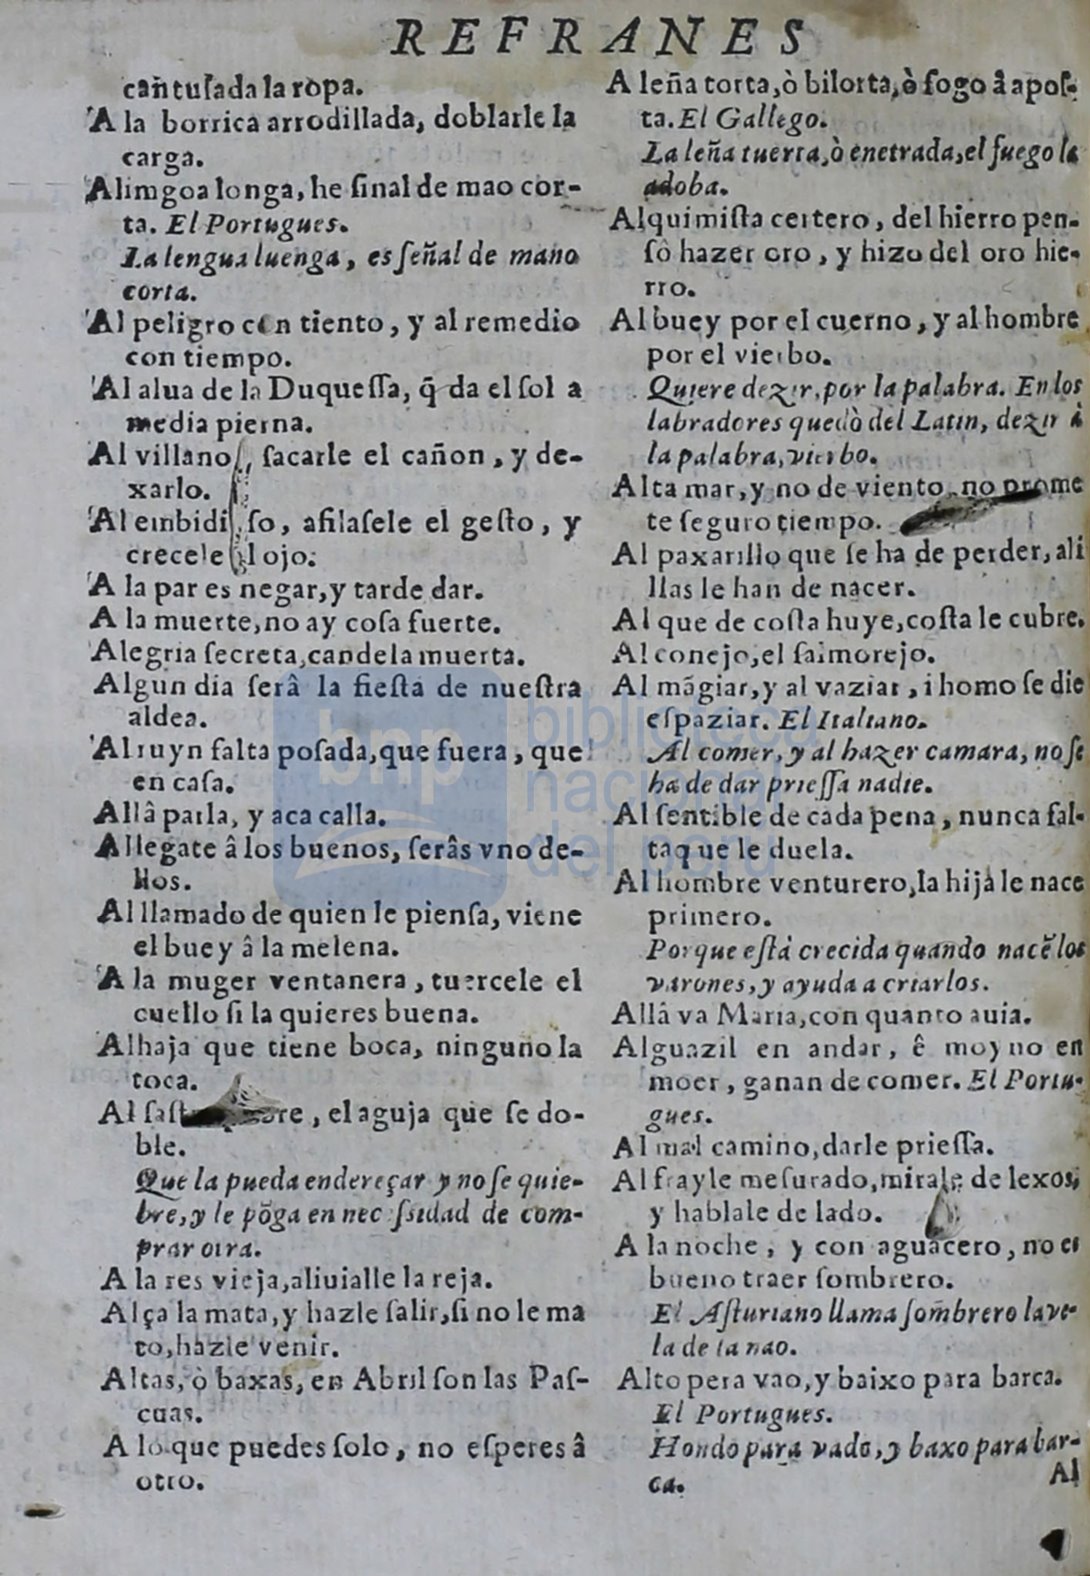 REFRANES
cañtuſada la ropa.
A la borrica arrodillada, doblarle la
carga.
Alimgoa longa, he ſinal de mao cor-
ta. El Portugues.
La lengua luenga, es ſeñal de mano
corta.
Al peligro con tiento, y al remedio
con tiempo.
Al alua de la Duqueſſa, q̃ da el ſol a
media pierna.
Al villano, ſacarle el cañon, y de-
xarlo.
Al embidioſo, afilaſele el geſto, y
crecele el ojo.
A la par es negar, y tarde dar.
A la muerte, no ay coſa fuerte.
Alegria ſecreta, candela muerta.
Algun dia ſerâ la fieſta de nueſtra
aldea.
Al ruyn falta poſada, que fuera, que
en caſa.
Allâ parla, y aca calla.
Allegate â los buenos, ſerâs vno de-
llos.
Al llamado de quien le pienſa, viene
el buey â la melena.
A la muger ventanera, tuercele el
cuello ſi la quieres buena.
Alhaja que tiene boca, ninguno la
toca.
Al ſaſtre, el aguja que ſe do-
ble.
Que la pueda endereçar y no ſe quie-
bre, y le põga en neceſſidad de com-
prar otra.
A la res vieja, aliuialle la reja.
Alça la mata, y hazle ſalir, ſi no le ma
to, hazle venir.
Altas, ò baxas, en Abril ſon las Paſ-
cuas.
A lo que puedes ſolo, no eſperes â
otro.
A leña torta, ò bilorta, ò fogo â apoſ-
ta. El Gallego.
La leña tuerta, ò enetrada, el fuego la
adoba.
Alquimiſta certero, del hierro pen-
ſô hazer oro, y hizo del oro hie-
rro.
Al buey por el cuerno, y al hombre
por el vierbo.
Quiere dezir, por la palabra. En los
labradores quedò del Latin, dezir à
la palabra, vierbo.
Alta mar, y no de viento, no prome
te ſeguro tiempo.
Al paxarillo que ſe ha de perder, ali
llas le han de nacer.
Al que de coſta huye, coſta le cubre.
Al conejo, el ſalmorejo.
Al mãgiar, y al vaziar, i homo ſe die
eſpaziar. El Italiano.
Al comer, y al hazer camara, no ſe
ha de dar prieſſa nadie.
Al ſentible de cada pena, nunca fal-
ta que le duela.
Al hombre venturero, la hija le nace
primero.
Porque eſtà crecida quando nacẽ los
varones, y ayuda a criarlos.
Allâ va Maria, con quanto auia.
Alguazil en andar, ê moyno en
moer, ganan de comer. El Portu-
gues.
Al mal camino, darle prieſſa.
Al frayle meſurado, mirale de lexos,
y hablale de lado.
A la noche, y con aguacero, no es
bueno traer ſombrero.
El Aſturiano llama ſombrero la ve-
la de la nao.
Alto pera vao, y baixo para barca.
El Portugues.
Hondo para vado, y baxo para bar-
ca.
Al
bnp biblioteca
nacional
del perú